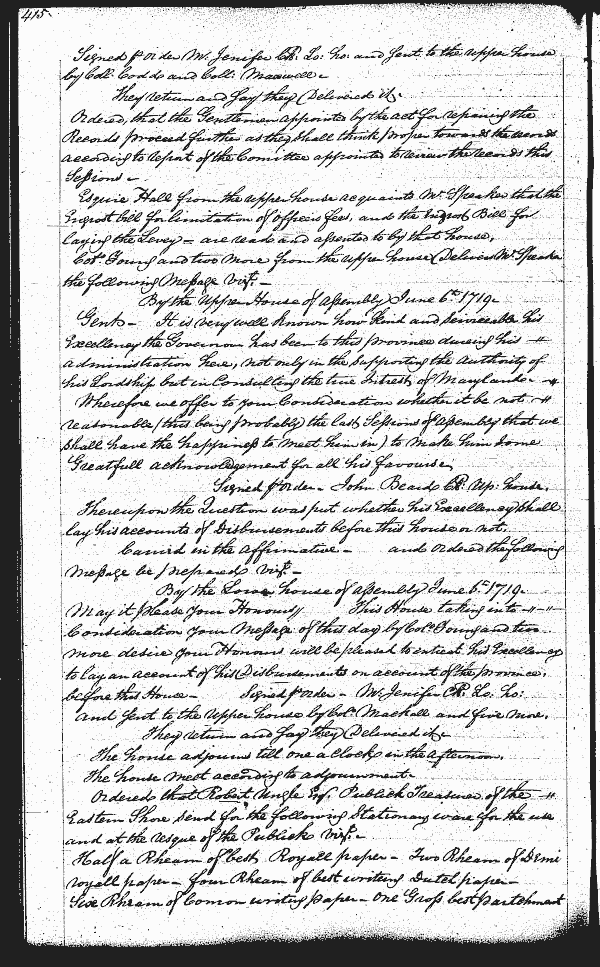 415
Signed p order M. Jenifer Cl: Lo: ho: and sent to the upper house
by Coll. Codds and Coll: Maxwell.
They return and say they Delivered it.
Ordered, that the Gentlemen appointed by the act for repairing the
Records proceed further as they shall think proper towards the records
according to report of the Comittee appointed to view the records this
Sessions.
Esquire Hall from the upper house acquaints Mr. Speaker that the
Engrost bill for limitation of officers fees, and the Engrost Bill for
laying the Levey - are read and assented to by that house.
Colo. Young and two more from the upper house Delivers Mr. Speaker
the following Message vizt. -
By the Upper House of Assembly June 6th. 1719.
Gents - It is very well known how kind and Serviceable his
Excellency the Governour has been to this province dureing his -"
administration here, not only in the Supporting the authority of
his Lordship but in Consulting the true Intrest of Maryland. -"
Wherefore we offer to your Consideration whether it be not -"
reasonable (this being probably the last Sessions of assembly that we
shall have the happiness to meet him in) to make him some
Greatfull acknowledgement for all his favours.
Signed p order - John Beard Cl: Up: house.
Thereupon the Question was put whether his Excellency shall
lay his accounts of Disbursements before this house or not.
Carried in the affirmative - and ordered the following
message be prepared vizt. -
By the Lower house of assembly June 6th. 1719.
May it please your Honours This House taking into -"-"
Consideration your Message of this day by Colo. Young and two
more desire your Honours will be pleased to entreat his Excellency
to lay an account of his Disbursements on account of the province,
before this House - Signed p order - M. Jenifer Cl: Lo: ho:
and sent to the upper house by Colo. Mackall and five more.
They return and say they Delivered it.
The house adjourns till one a Clock in the afternoon.
The house meet according to adjournment.
Ordered that Robert Ungle Esq. Publick Treasurer of the -"
Eastern Shore send for the following Stationary ware for the use
and at the resque of the Publick vizt. -
Half a Rheam of best Royall paper - Two Rheam of Demi
royall paper - four Rheam of best writing Dutch paper -
Six Rheam of Comon writing paper - one Gross best partchment